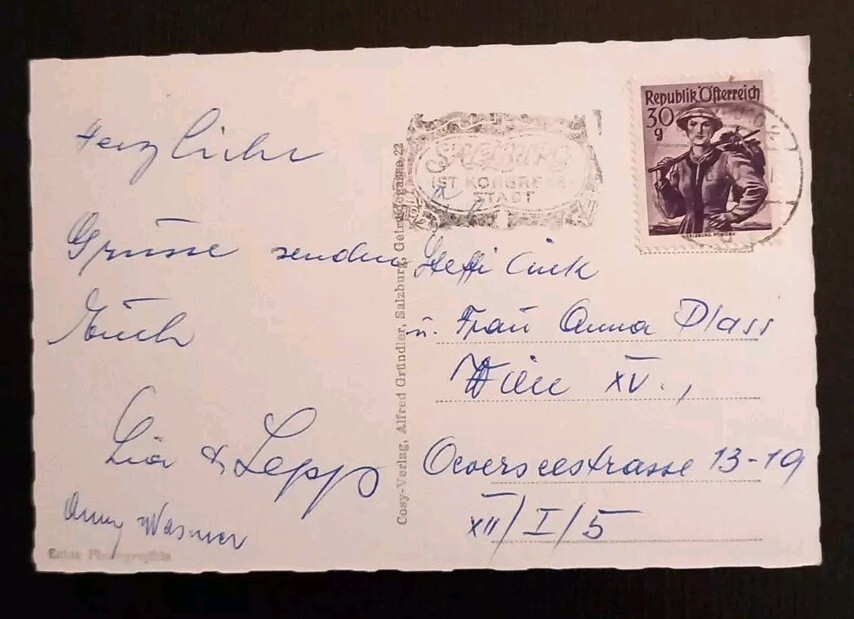 Herzliche
Grüsse senden
Euch
Lia & Sepp
Anny Wasmer
Echte Photographie
Cosy-Verlag, Alfred Gründler, Salzburg, Getreidegasse 22
SALZBURG
IST KONGRESS-
STADT
Republik Österreich
30
g
Steffi
u. Frau Anna Plass
Wien XV.,
Oeverseestrasse 13-19
XII/I/5